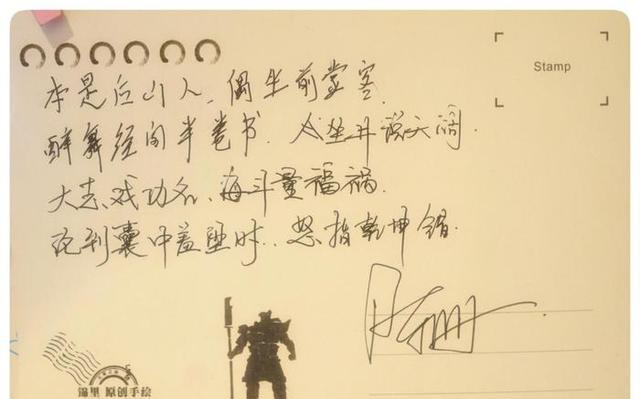 Stamp
本是后山人、偶坐前堂客.
醉舞经阁半卷书. 坐井说天阔.
大志戏功名、海斗量福祸.
论到囊中羞涩时.. 怒指乾坤错.
锦里 原创手绘